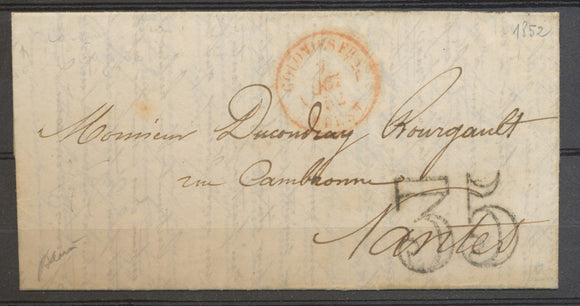 1852
COLONIES FR.
Monsieur Ducoudray Bourgault
rue Cambronne
Nantes
35